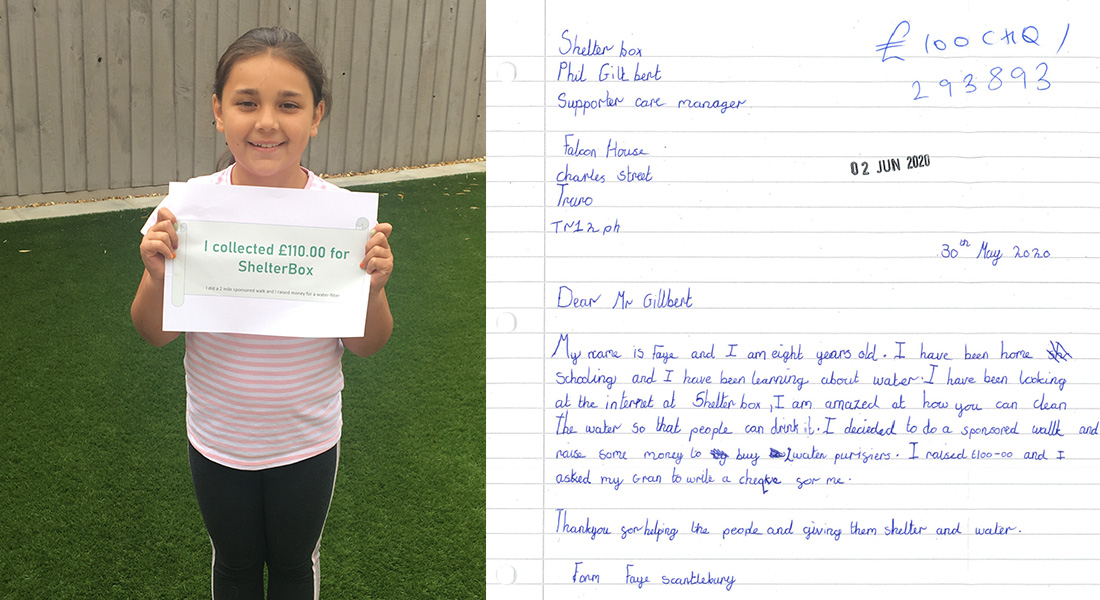 I collected £110.00 for
ShelterBox
I did a 2 mile sponsored walk and I raised money for a water filter
Shelter box
Phil Gilkbert
Supporter care manager
£100 CHQ /
293893
Falcon House
charles street
Truro
TR12ph
02 JUN 2020
30th May 2020
Dear Mr Gillbert
My name is Faye and I am eight years old. I have been home
schooling and I have been learning about water. I have been looking
at the internet at Shelter box, I am amazed at how you can clean
The water so that people can drink it. I decieded to do a sponsored wallk and
raise some money to buy 2 water purifiers. I raised £100-00 and I
asked my Gran to write a cheqke for me.
Thankyou for helping the people and giving them shelter and water.
Form Faye Scantlebury